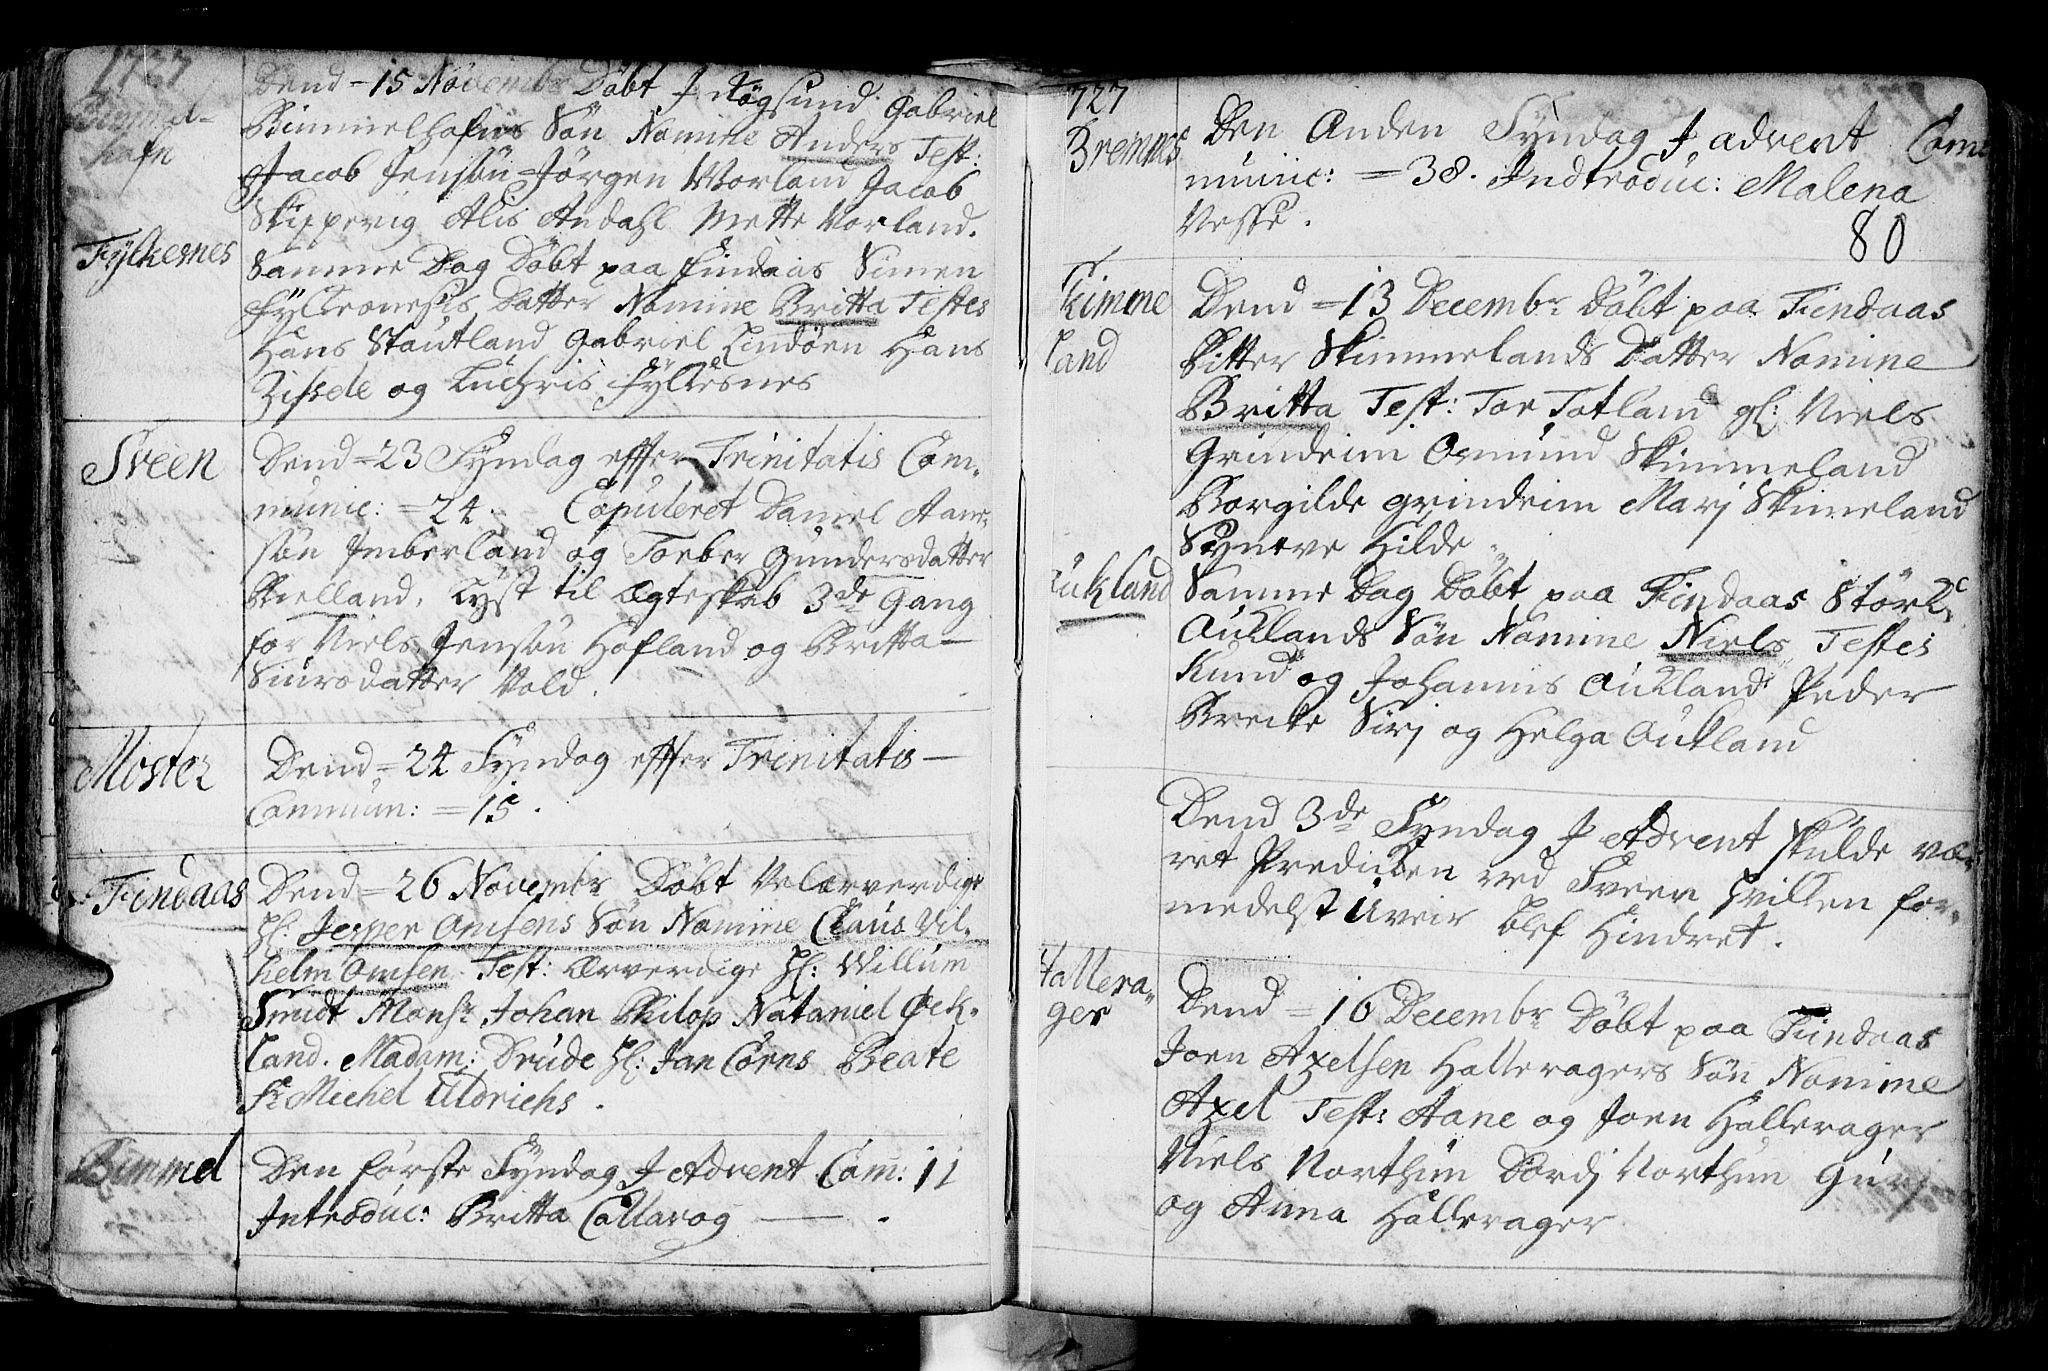 1727
Bimmel-
hafn
Dend = 15 Novembr Døbt J Røgsund Gabriel
Bimmelhafns Søn Nomine Anders Test:
Jacob Jensøn Jørgen Worland Jacob
Skippevig Alis Andahl Mette Vorland.
Fylkesnes
Samme Dag Døbt paa Findaas Simen
Datter Nomine Britta Testes
Hans Stautland Gabriel Lindøen Hans
og Fylkesnes
Sveen
Dend = 23 Syndag effter Trinitatis Com-
munic: = 24. Copuleret Daniel Aane-
søn Imberland og Torber Gundersdatter
Kielland, Lyst til Ægteskab 3de Gang
for Niels Jensøn Hofland og Britta
Siursdatter Vold.
Moster
Dend = 24 Syndag effter Trinitatis
Commun: = 15.
Findaas
Dend = 26 Novembr Døbt Velærverdige
Hl: Jesper Omsens Søn Nomine Claus Vil-
helm Omsen. Test: Ærverdige Hl: Willum
Smidt Monsr Johan Philop Nataniel Øek-
land. Madam: Drude Hl: Jan Cørns Beate
Sr Michel Uldrichs.
Bimmel
Den første Syndag J Advent Com: 11
Introduc: Britta Collavog
727
Bremnes
Den Anden Syndag J advent Com
munic: = 38. Indtroduc: Malena
Vespe.
80
kimme
land
Dend = 13 Decembr Døbt paa Findaas
Pitter Skimmelands Datter Nomine
Britta Test: Tor Totland gl: Niels
Grindeim Osmund Skimmeland
Borgilde grindeim Marj Skimeland
Syneve Hilde
Aukland
Samme Dag Døbt paa Findaas Størk
Auklands Søn Nomine Niels Testes
Knud og Johannis Aukland Peder
Brecke Sirj og Helga Aukland
Dend 3de Syndag J Advent skulde væ-
ret Prediken ved Sveen hvilken for-
medelst Uveir blef Hindret.
Hallera-
ger
Dend = 16 Decembr Døbt paa Findaas
Joen Axelsen Hallieragers Søn Nomine
Axel Test: Aane og Joen Hallerager
Niels Northun Dordj Northun Gurj
og Anna Hallerager